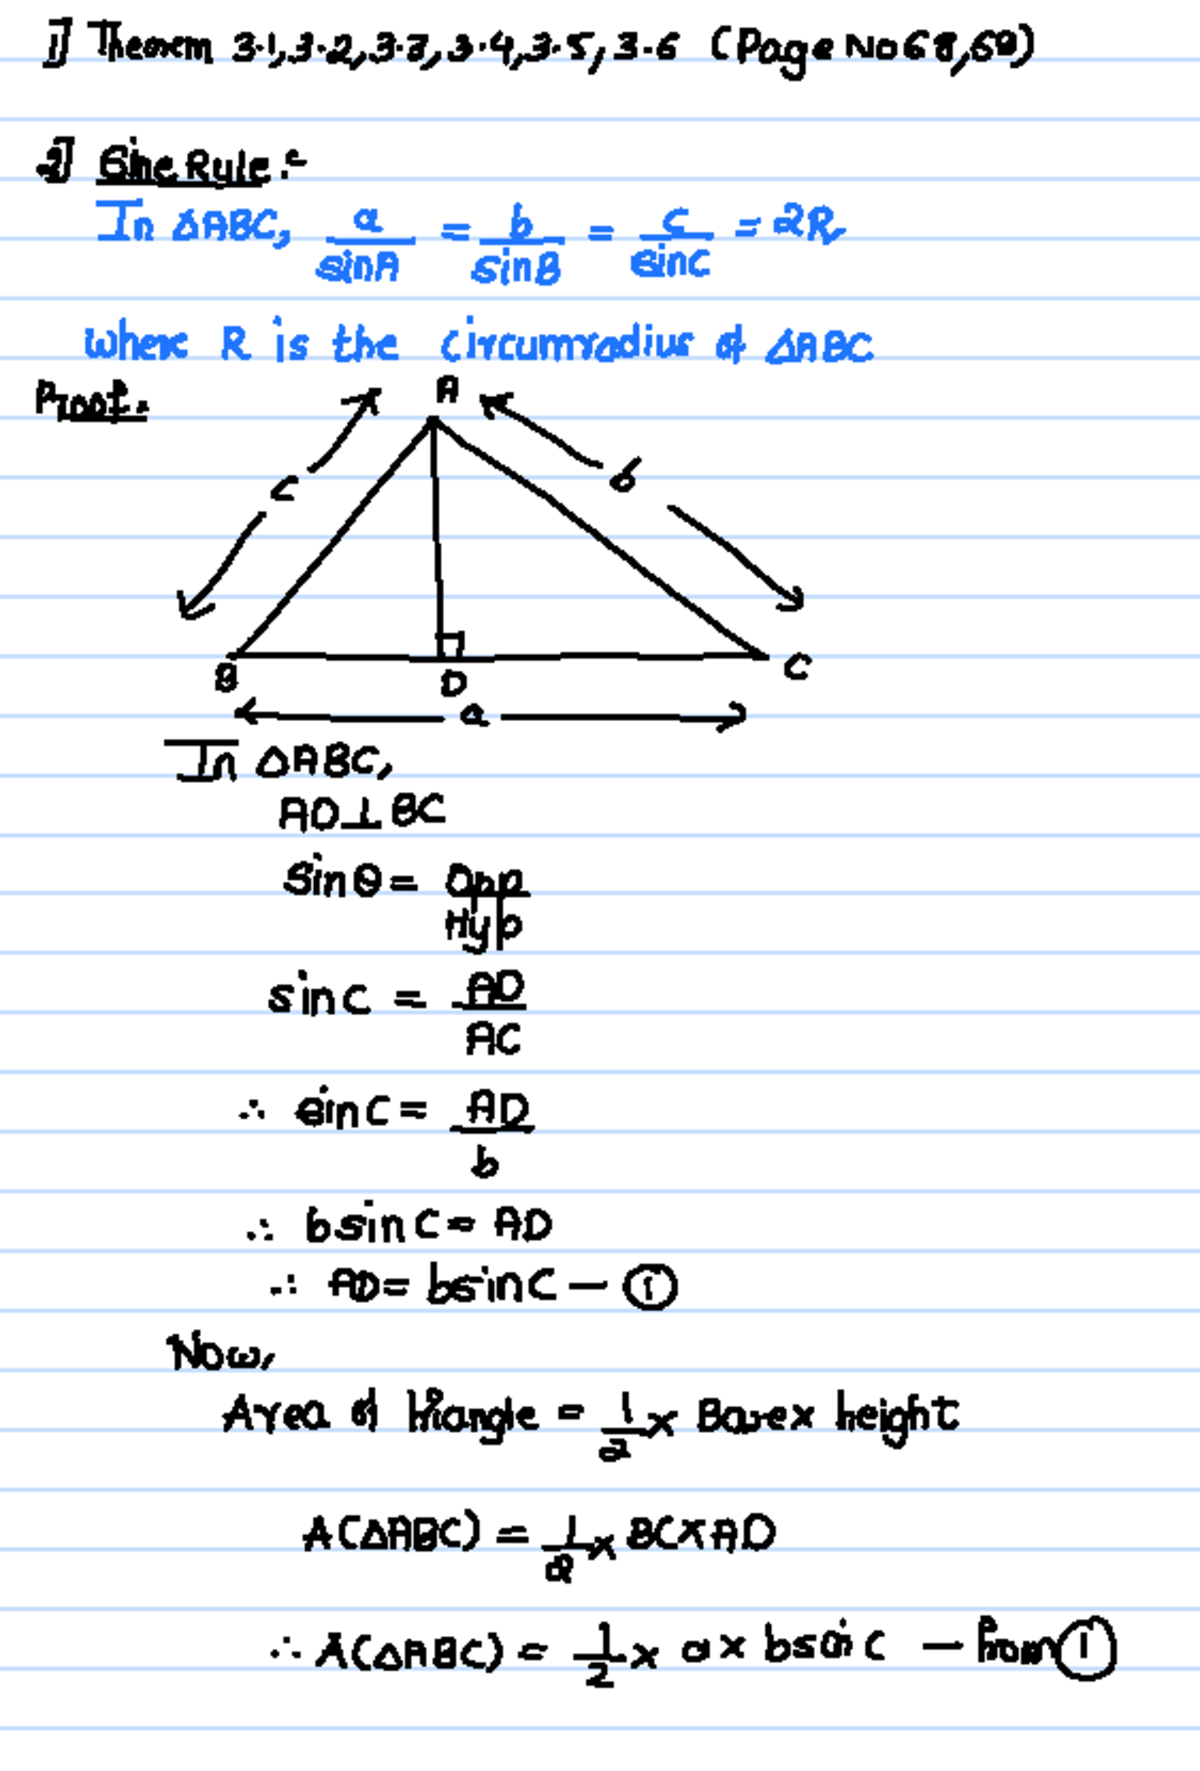 1] Theorem 3.1, 3.2, 3.3, 3.4, 3.5, 3.6 (Page No 68, 69)
2] Sine Rule :-
In ΔABC, a/sinA = b/sinB = c/sinC = 2R
where R is the circumradius of ΔABC
Proof.
A
c
b
B
D
C
a
In ΔABC,
AD⊥BC
sinθ = Opp/Hyp
sinC = AD/AC
∴ sinC = AD/b
∴ bsinC = AD
∴ AD = bsinC — ①
Now,
Area of triangle = 1/2 × Base × height
A(ΔABC) = 1/2 × BC × AD
∴ A(ΔABC) = 1/2 × a × bsinC — from ①